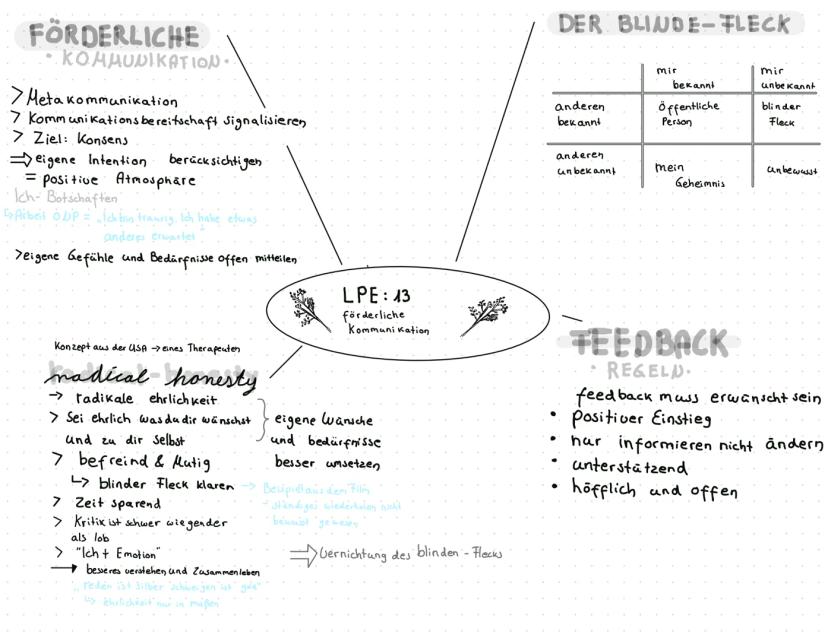 FÖRDERLICHE
• KOMMUNIKATION •
> Metakommunikation
> Kommunikationsbereitschaft signalisieren
> Ziel: Konsens
⇒ eigene Intention berücksichtigen
= positive Atmosphäre
Ich-Botschaften
= „Ich bin traurig. Ich habe etwas
anderes erwartet"
> eigene Gefühle und Bedürfnisse offen mitteilen
DER BLINDE-FLECK
mir bekannt
mir unbekannt
anderen bekannt
Öffentliche Person
blinder Fleck
anderen unbekannt
mein Geheimnis
unbewusst
LPE: 13
förderliche
Kommunikation
Konzept aus der USA → eines Therapeuten
radical honesty
→ radikale ehrlichkeit
> Sei ehrlich was du dir wünschst
und zu dir selbst
eigene Wünsche
und bedürfnisse
besser umsetzen
> befreind & Mutig
↳ blinder Fleck klaren
→ Beispiel aus dem Film
- ständiges wiederholen nicht
bewusst gewesen
> Zeit sparend
> Kritik ist schwer wiegender
als lob
> "Ich + Emotion"
→ besseres verstehen und Zusammenleben
„reden ist silber schweigen ist gold"
↳ ehrlichkeit nur in maßen
⇒ Vernichtung des blinden - Flecks
FEEDBACK
• REGELN •
feedback muss erwünscht sein
• positiver Einstieg
• nur informieren nicht ändern
• unterstützend
• höfflich und offen